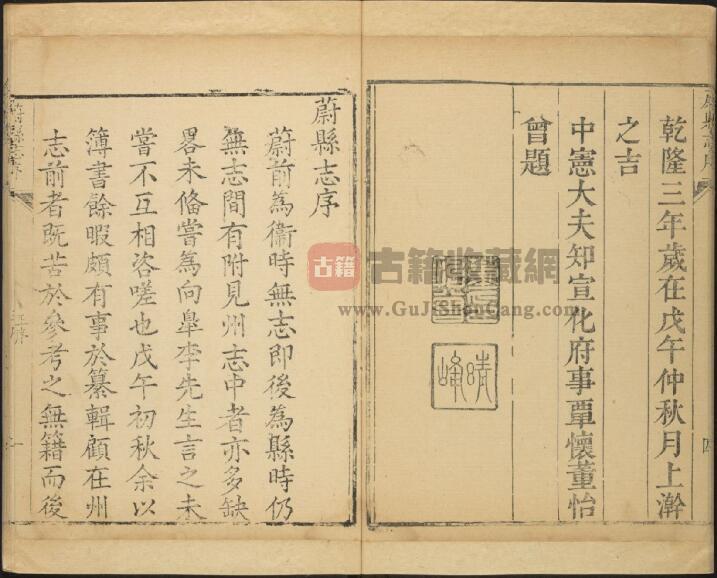 乾隆三年歲在戊午仲秋月上澣
之吉
中憲大夫知宣化府事覃懷董怡
曾題
四
晴峰
蔚縣志序
蔚前為衞時無志即後為縣時仍
無志間有附見州志中者亦多缺
畧未俻嘗為向臯李先生言之未
嘗不互相咨嗟也戊午初秋余以
簿書餘暇頗有事於纂輯顧在州
志前者既苦於參考之無籍而後
古籍
古籍收藏網
www.GuJiShouCang.com